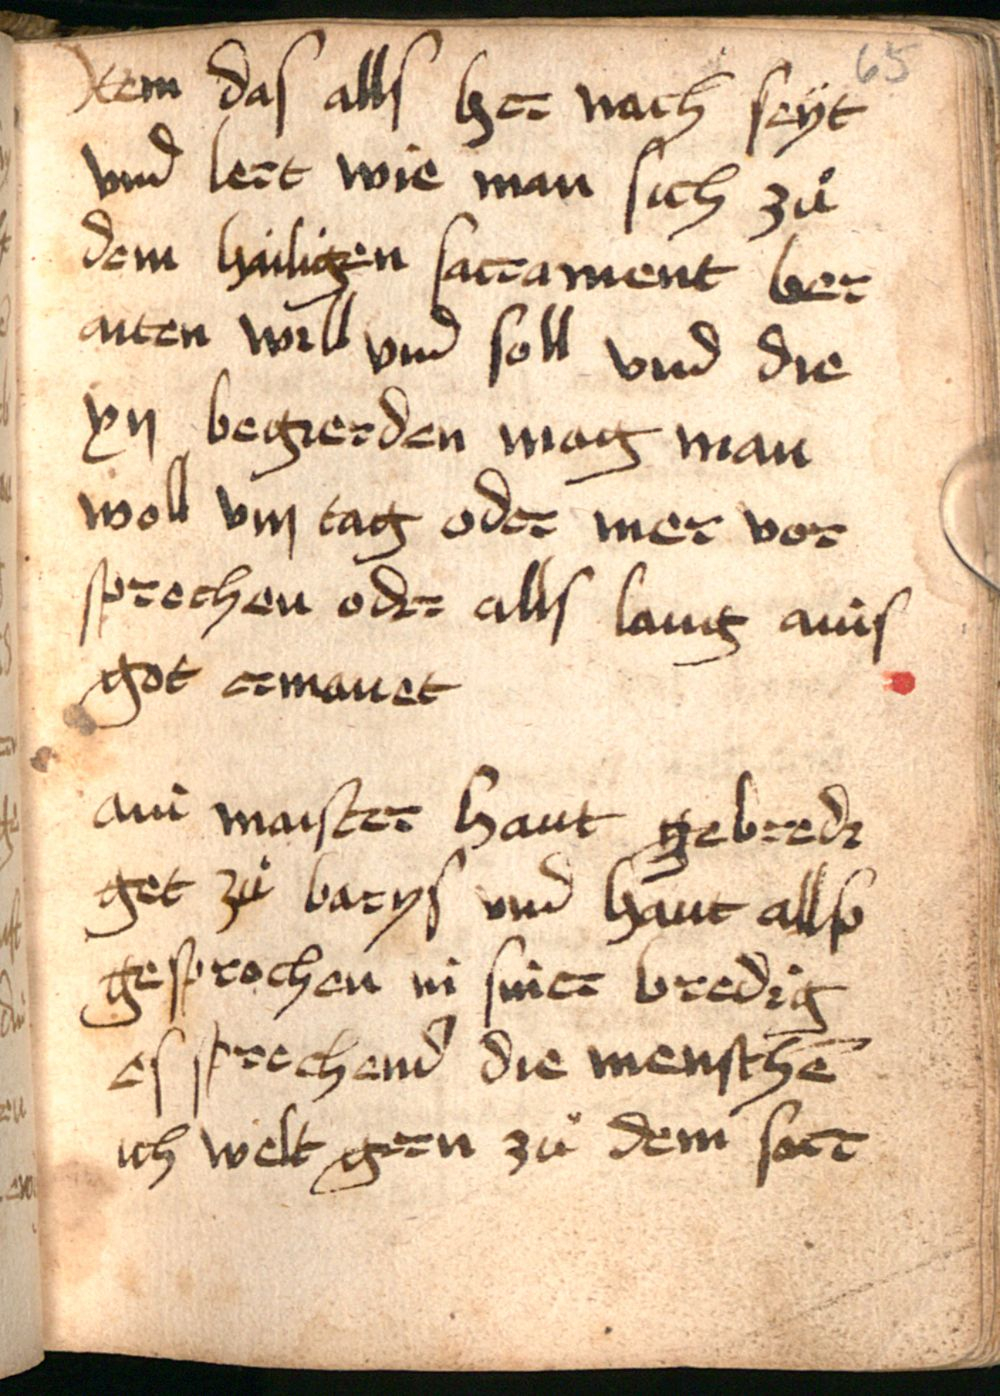 65
Item das alls her nach seÿt
vnd lert wie man sich zů
dem hailigen sacrament ber
aiten will vnd soll vnd die
xij begierden mag man
woll viij tag oder mer vor
sprechen oder alls lang ains
got ermanet
ain maister haut gebredi
get zů barys vnd haut allso
gesprochen in siner bredig
es sprechend die menschē
ich welt gern zů dem sacr